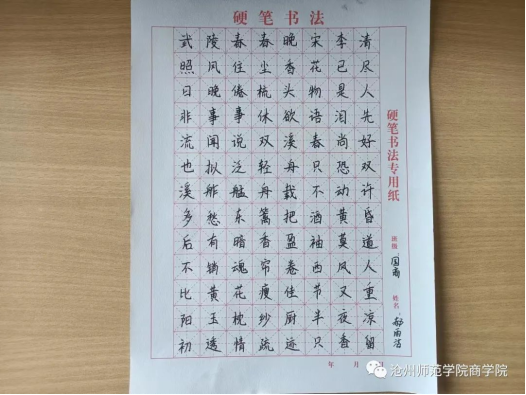 硬笔书法
武陵春春晚宋李清
照风住尘香花已尽
日晚倦梳头物是人
非事事休欲语泪先
流闻说双溪春尚好
也拟泛轻舟只恐双
溪舴艋舟载不动许
多愁东篱把酒黄昏
后有暗香盈袖莫道
不销魂帘卷西风人
比黄花瘦佳节又重
阳玉枕纱厨半夜凉
初透情疏迹只香留
硬笔书法专用纸
班级
姓名
年 月 日
沧州师范学院商学院